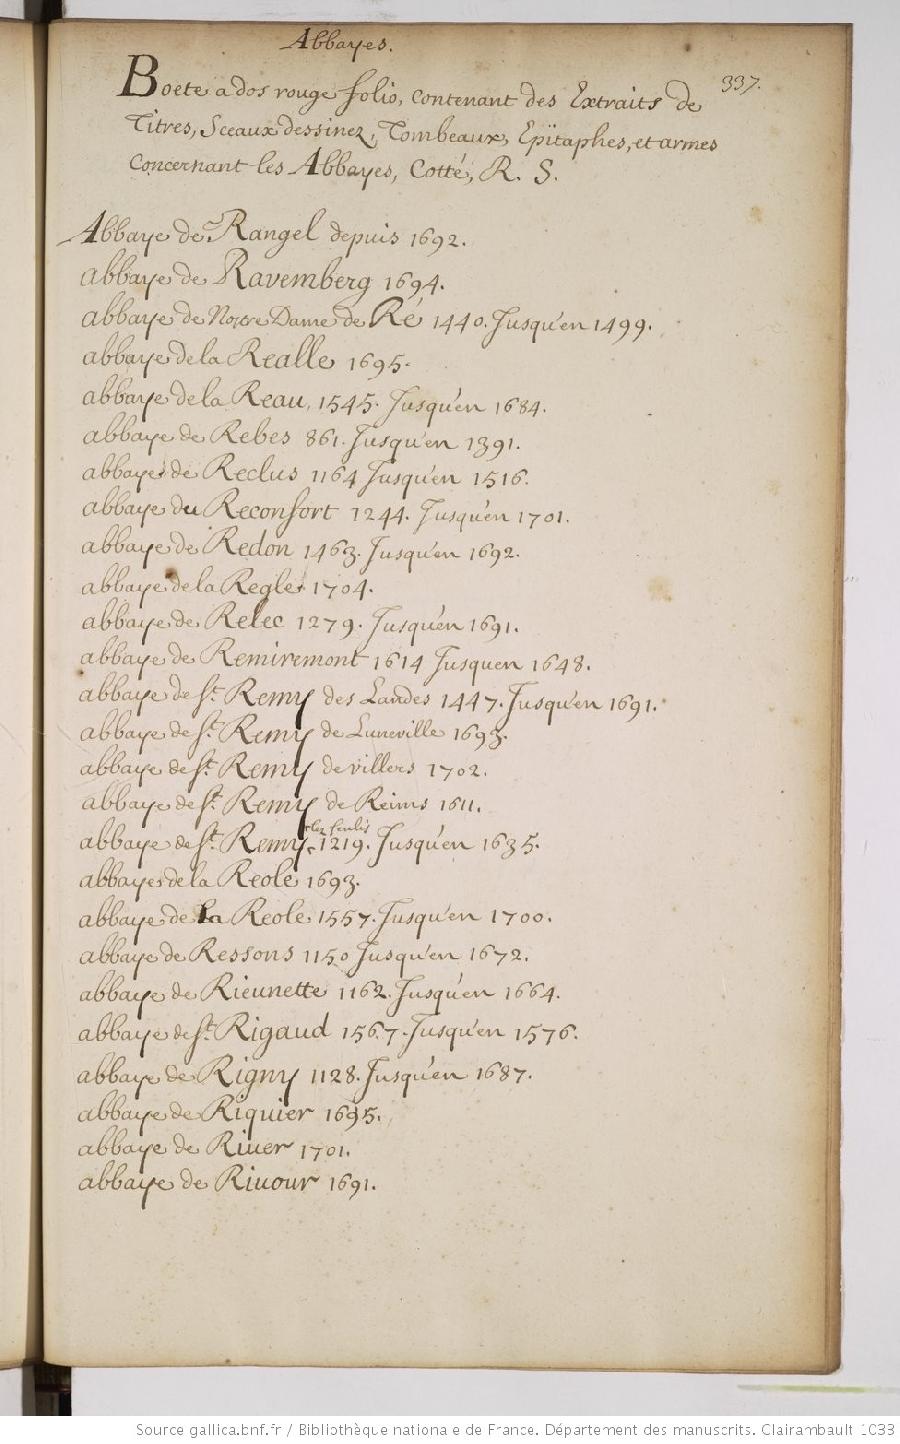 Abbayes.
337.
Boete a dos rouge folio, contenant des Extraits de
Titres, Sceaux dessinez, Tombeaux, Epitaphes, et armes
concernant les Abbayes, Cotté, R. S.
Abbaye de Rangel depuis 1692.
abbaye de Ravemberg 1694.
abbaye de Notre Dame de Ré 1440. Jusqu'en 1499.
abbaye de la Realle 1695.
abbaye de la Reau, 1545. Jusqu'en 1684.
abbaye de Rebes 861. Jusqu'en 1391.
abbaye de Reclus 1164 Jusqu'en 1516.
abbaye du Reconfort 1244. Jusqu'en 1701.
abbaye de Redon 1463. Jusqu'en 1692.
abbaye de la Regle 1704.
abbaye de Relec 1279. Jusqu'en 1691.
abbaye de Remiremont 1614 Jusquen 1648.
abbaye de St. Remy des Landes 1447. Jusqu'en 1691.
abbaye de St. Remy de Luneville 1693.
abbaye de St. Remy de villers 1702.
abbaye de St. Remy de Reims 1611.
abbaye de St. Remy lez Senlis 1219. Jusqu'en 1635.
abbaye de la Reole 1693.
abbaye de la Reole 1557. Jusqu'en 1700.
abbaye de Ressons 1150 Jusqu'en 1672.
abbaye de Rieunette 1162. Jusqu'en 1664.
abbaye de St. Rigaud 1567. Jusqu'en 1576.
abbaye de Rigny 1128. Jusqu'en 1687.
abbaye de Riquier 1695.
abbaye de Riuer 1701.
abbaye de Riuour 1691.
Source gallica.bnf.fr / Bibliothèque nationale de France. Département des manuscrits. Clairambault 1033